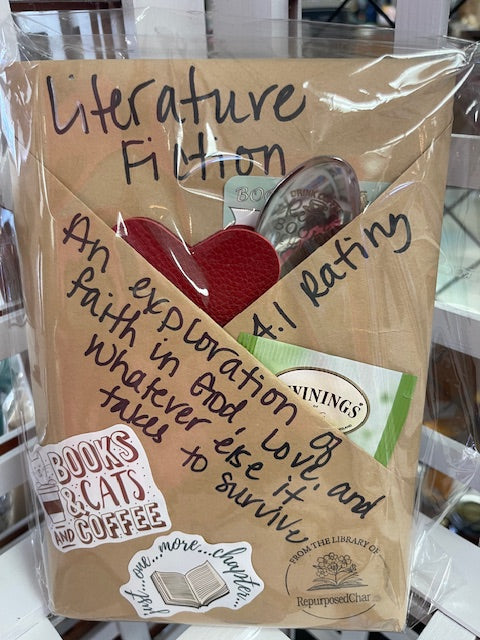 Literature
Fiction
BOO
4.1 Rating
An exploration of
faith in God, Love, and
whatever else it
takes to survive
VININGS
BOOKS
& CATS
AND COFFEE
just...one...more...chapter...
FROM THE LIBRARY OF
RepurposedChar